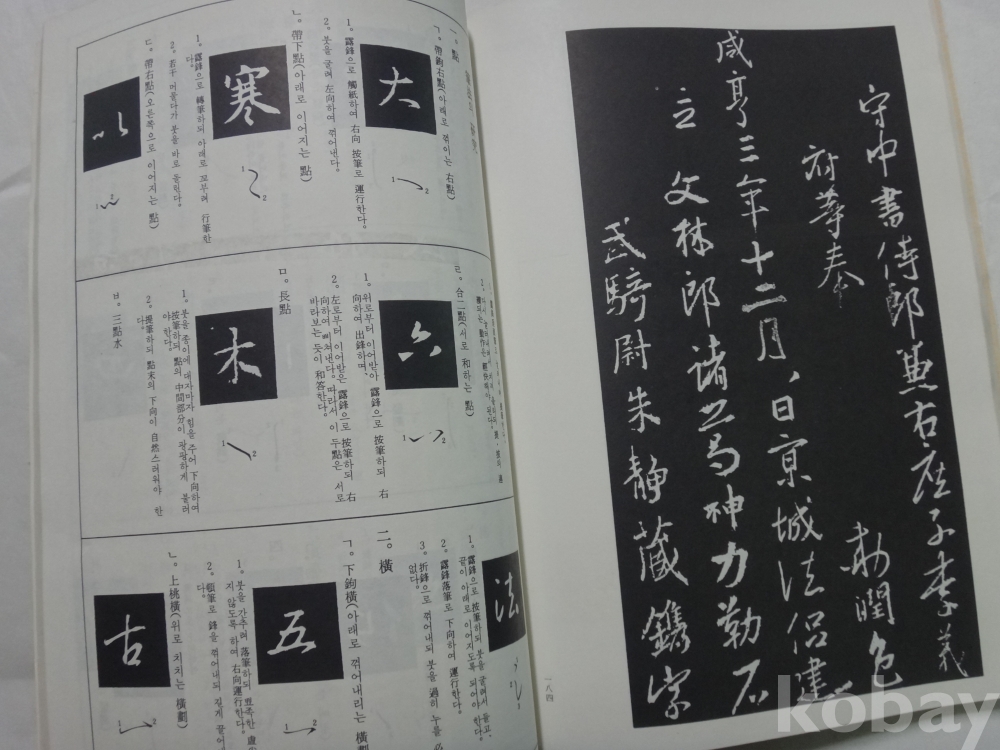 守中書侍郎兼右庶子李義
府等奉 勅潤色
咸亨三年十二月八日京城法侶建
立 文林郎諸葛神力勒石
武騎尉朱靜藏鐫字
一八四
一。點
ㄱ。帶鉤右點(아래로 꺾이는 右點)
大
1
2
1。露鋒으로 觸紙하여 右向 按筆로 運行한다。
2。붓을 굴려 左向하여 꺾어낸다。
ㄴ。帶下點(아래로 이어지는 點)
寒
1
2
1。露鋒으로 轉筆하되 아래로 꼬부려 行筆한
다。
2。若干 머물다가 붓을 바로 돌린다。
ㄷ。帶右點(오른쪽으로 이어지는 點)
以
ㄹ。合二點(서로 和하는 點)
六
1
2
1。위로부터 이어받아 露鋒으로 按筆하되 右
向하여 出鋒하며、
2。左로부터 이어받은 露鋒으로 按筆하되 右
向하여 삐쳐낸다。따라서 이 두點은 서로
바라보는 듯이 和答한다。
ㅁ。長點
木
1
2
1。붓을 종이에 대자마자 힘을 주어 下向하여
按筆하되 點의 中間部分이 팡팡하게 불러
야 한다。
2。提筆하되 點末의 下向이 自然스러워야 한
다。
ㅂ。三點水
法
1
2
1。露鋒으로 按筆하되 붓을 굴려서 들고、
끝이 아래로 이어지도록 되어야 한다。
2。露鋒落筆로 下向하여 든다。
3。折鋒으로 꺾어내되 붓을 過히 누를 必
없다。
二。橫
ㄱ。下鉤橫(아래로 꺾어내리는 橫劃)
五
1
2
1。붓을 간추려 落筆하되
지 않도록 하여 右向運行한다。
2。頓筆로 鋒을 꺾어내되 길게 끌어
다。
ㄴ。上挑橫(위로 치치는 橫劃)
古
1
2
kobay